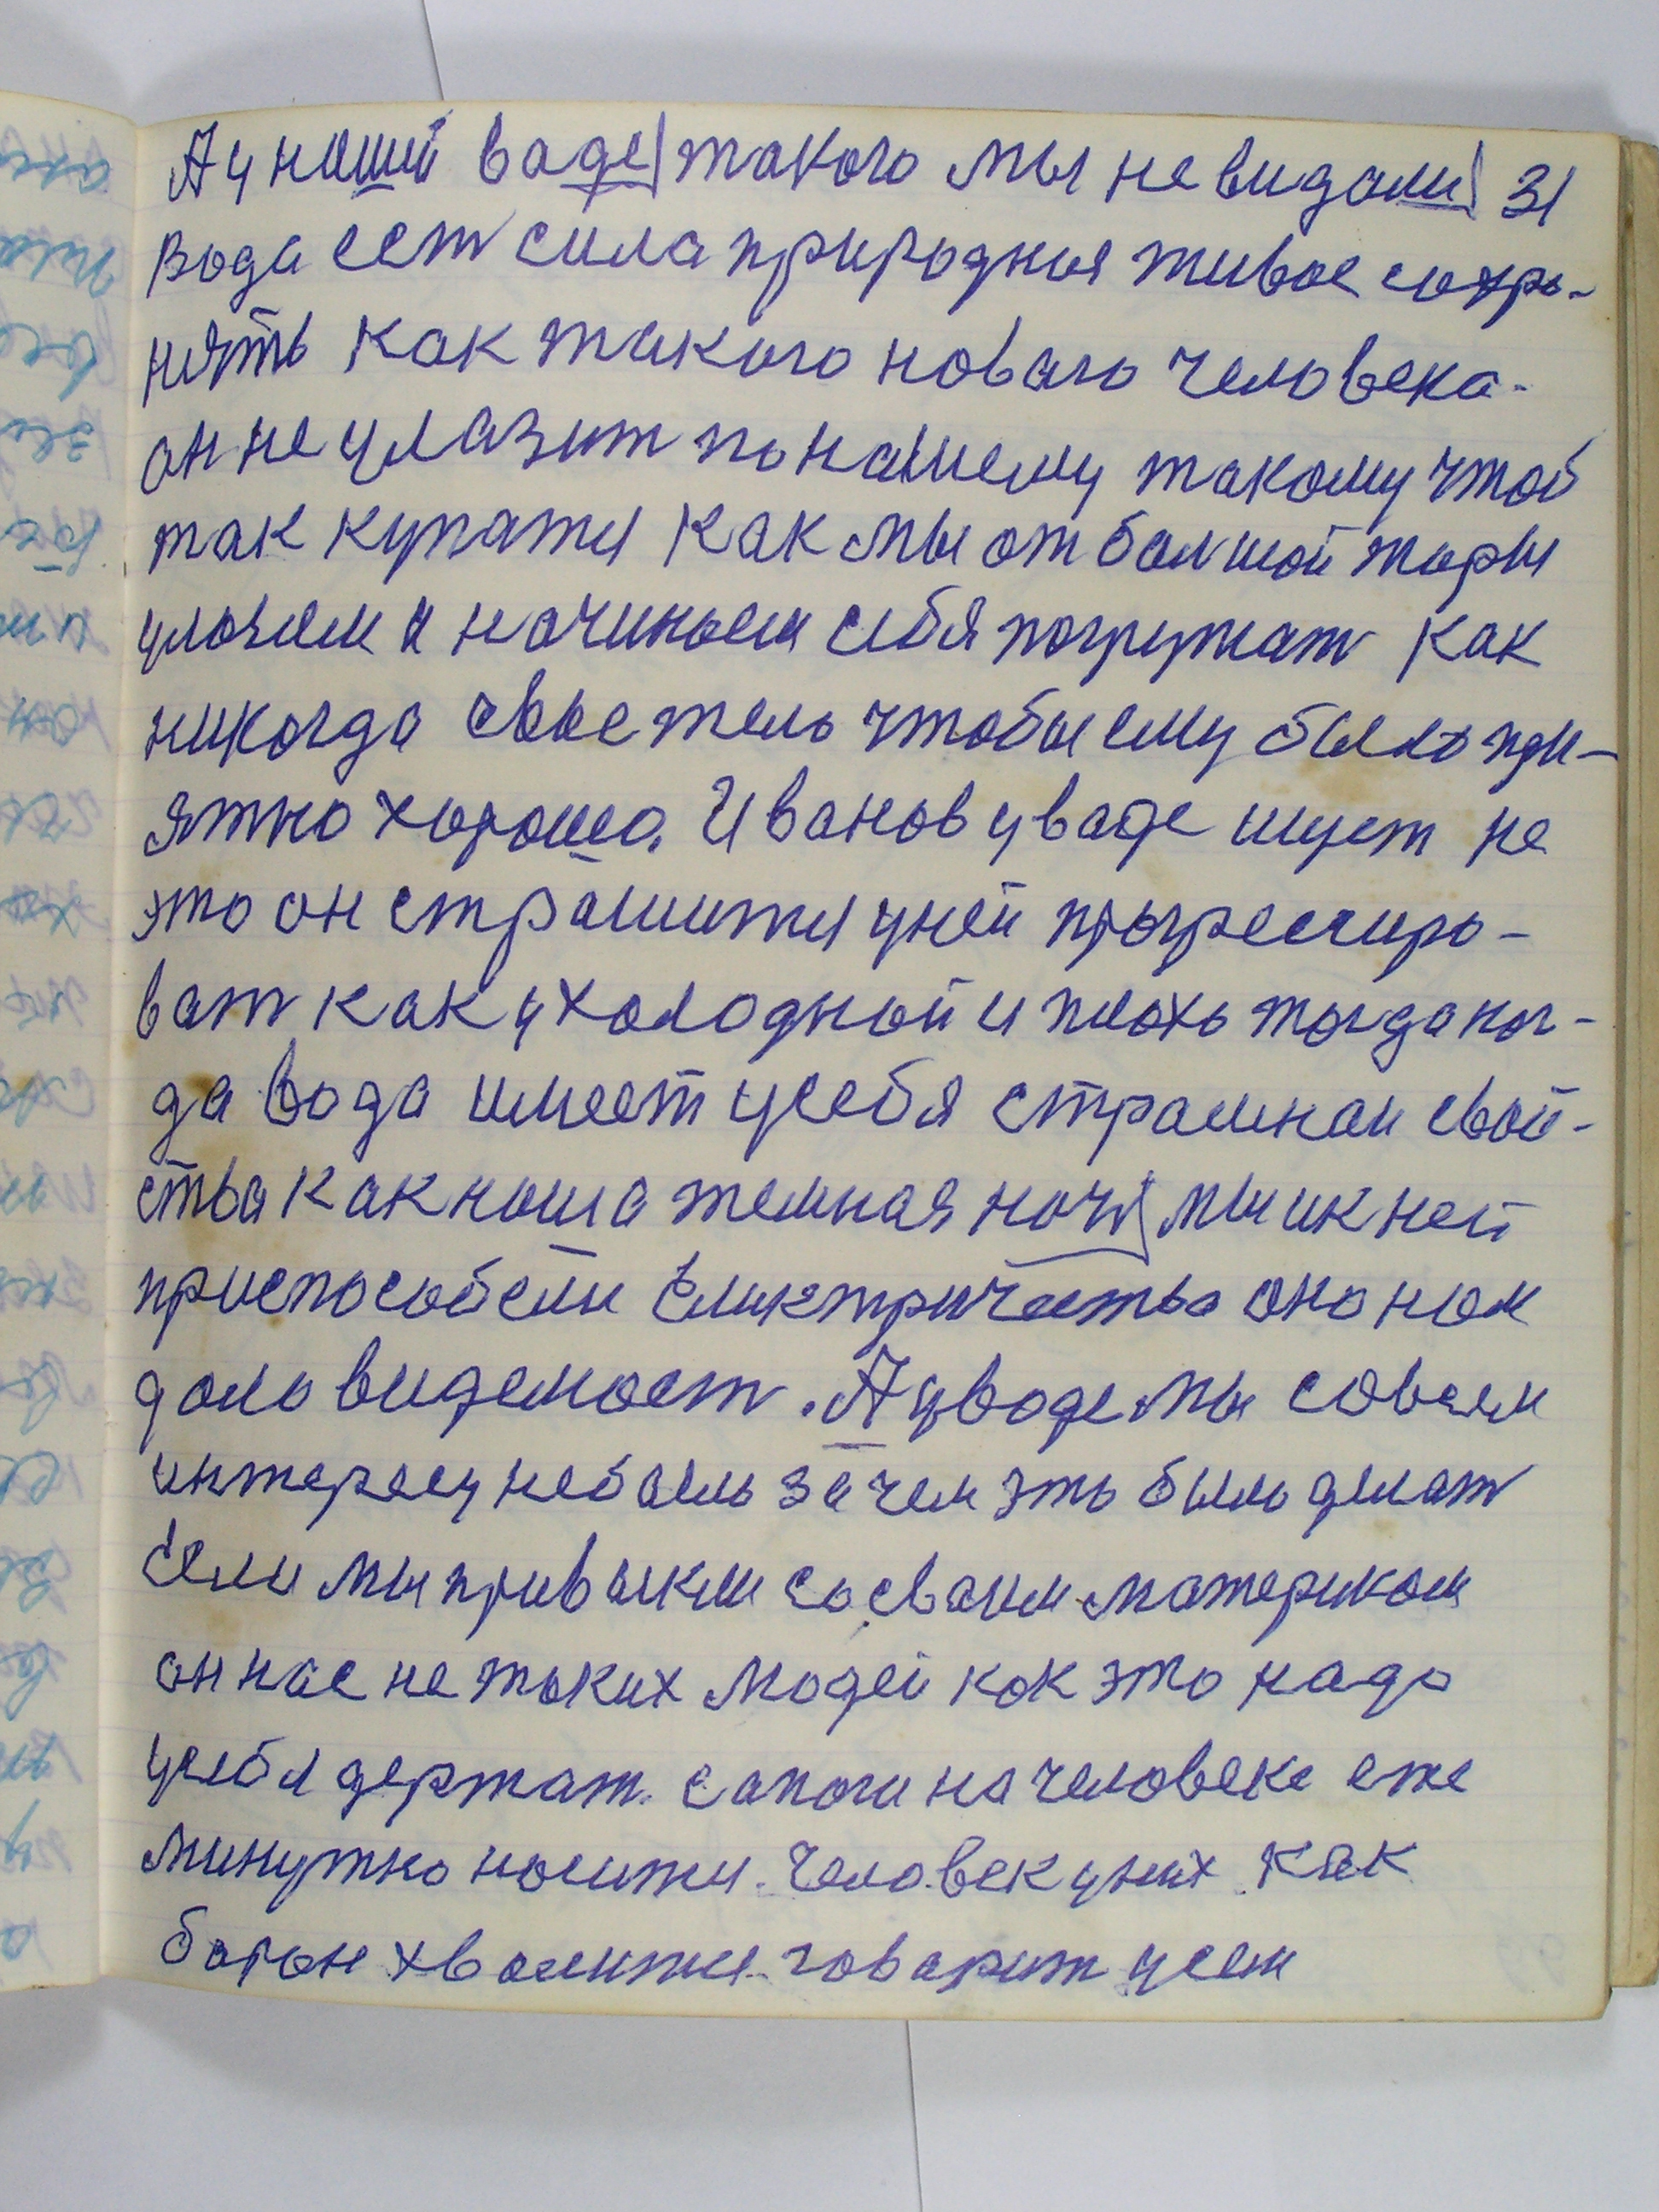 А у наший ваде такого мы не видали 31
вода ест сила природная живое сохро-
нять как такого новаго человека
он не улазит по нашему такому чтоб
так купатя как мы от балшой жары
улазем и начинаем себя погружат как
никогда свое тело чтобы ему было при-
ятно хорошо. Иванов у ваде ищет не
это он страшится у ней прогрессиро-
ват как у холодной и плохо тогда ког-
да вода имеет у себя страшнаи свой-
ства как наша темная ночь мы и к ней
приспособели електричество оно нам
дало видемост. А у воде мы совсем
интересу небыло зачем это было делат
Если мы привыкли со сваим материком
он нас не таких людей как это надо
у себя держат. сапоги на человеке еже
минутно носитя. Человек у них как
барон хвалится говарит усем